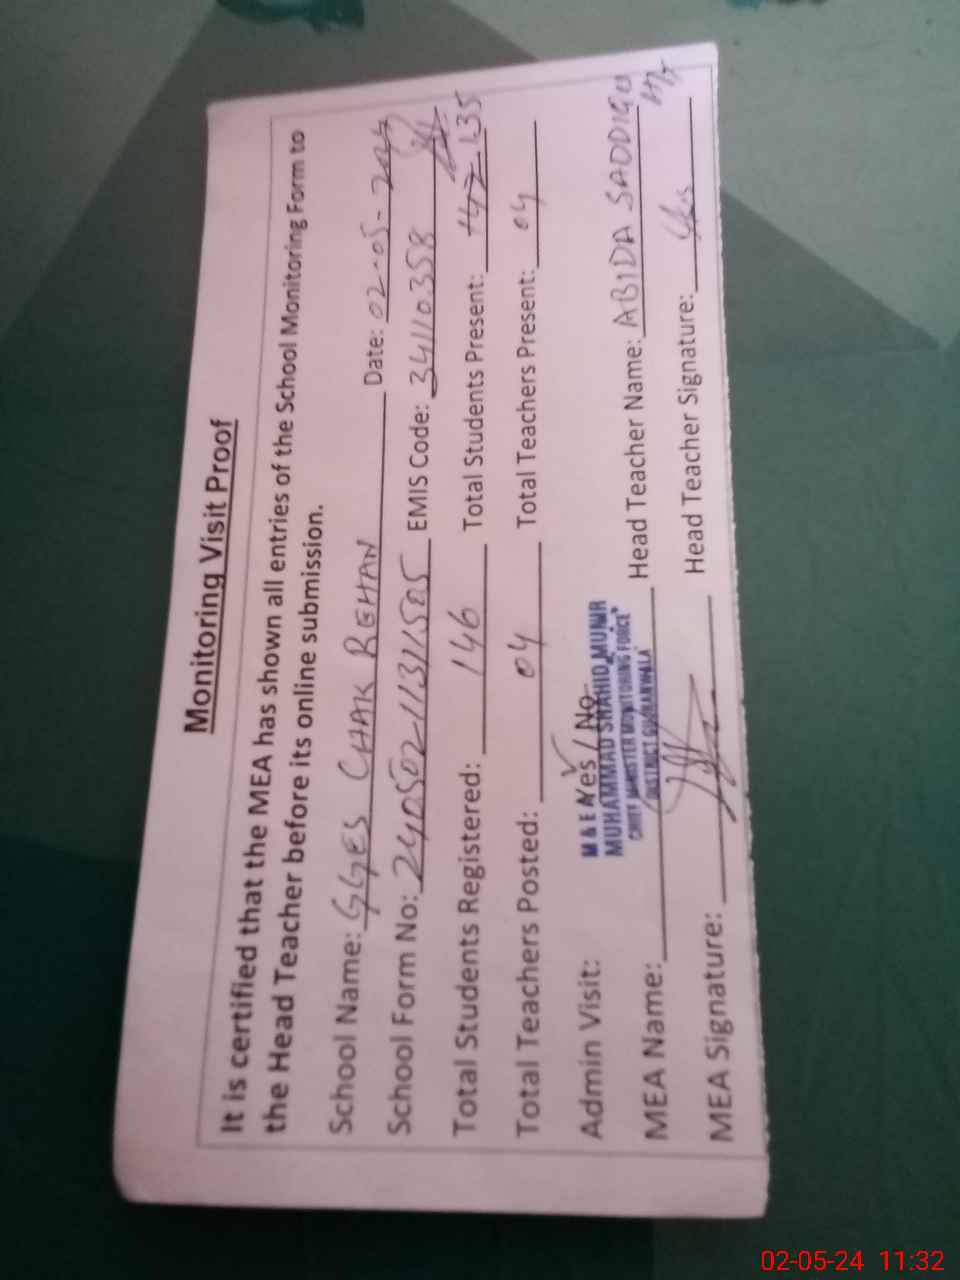 Monitoring Visit Proof
It is certified that the MEA has shown all entries of the School Monitoring Form to
the Head Teacher before its online submission.
School Name: GGES CHAK REHAN Date: 02-05-
School Form No: EMIS Code: 34110358
Total Students Registered: 146 Total Students Present: 147 135
Total Teachers Posted: 04 Total Teachers Present: 04
Admin Visit: Yes / No
M & EA
MUHAMMAD SHAHID MUNIR
CHIEF MINISTER MONITORING FORCE"
DISTRICT GUJRANWALA
MEA Name: Head Teacher Name: ABIDA SADDIQU
MEA Signature: Head Teacher Signature: Yes
02-05-24 11:32